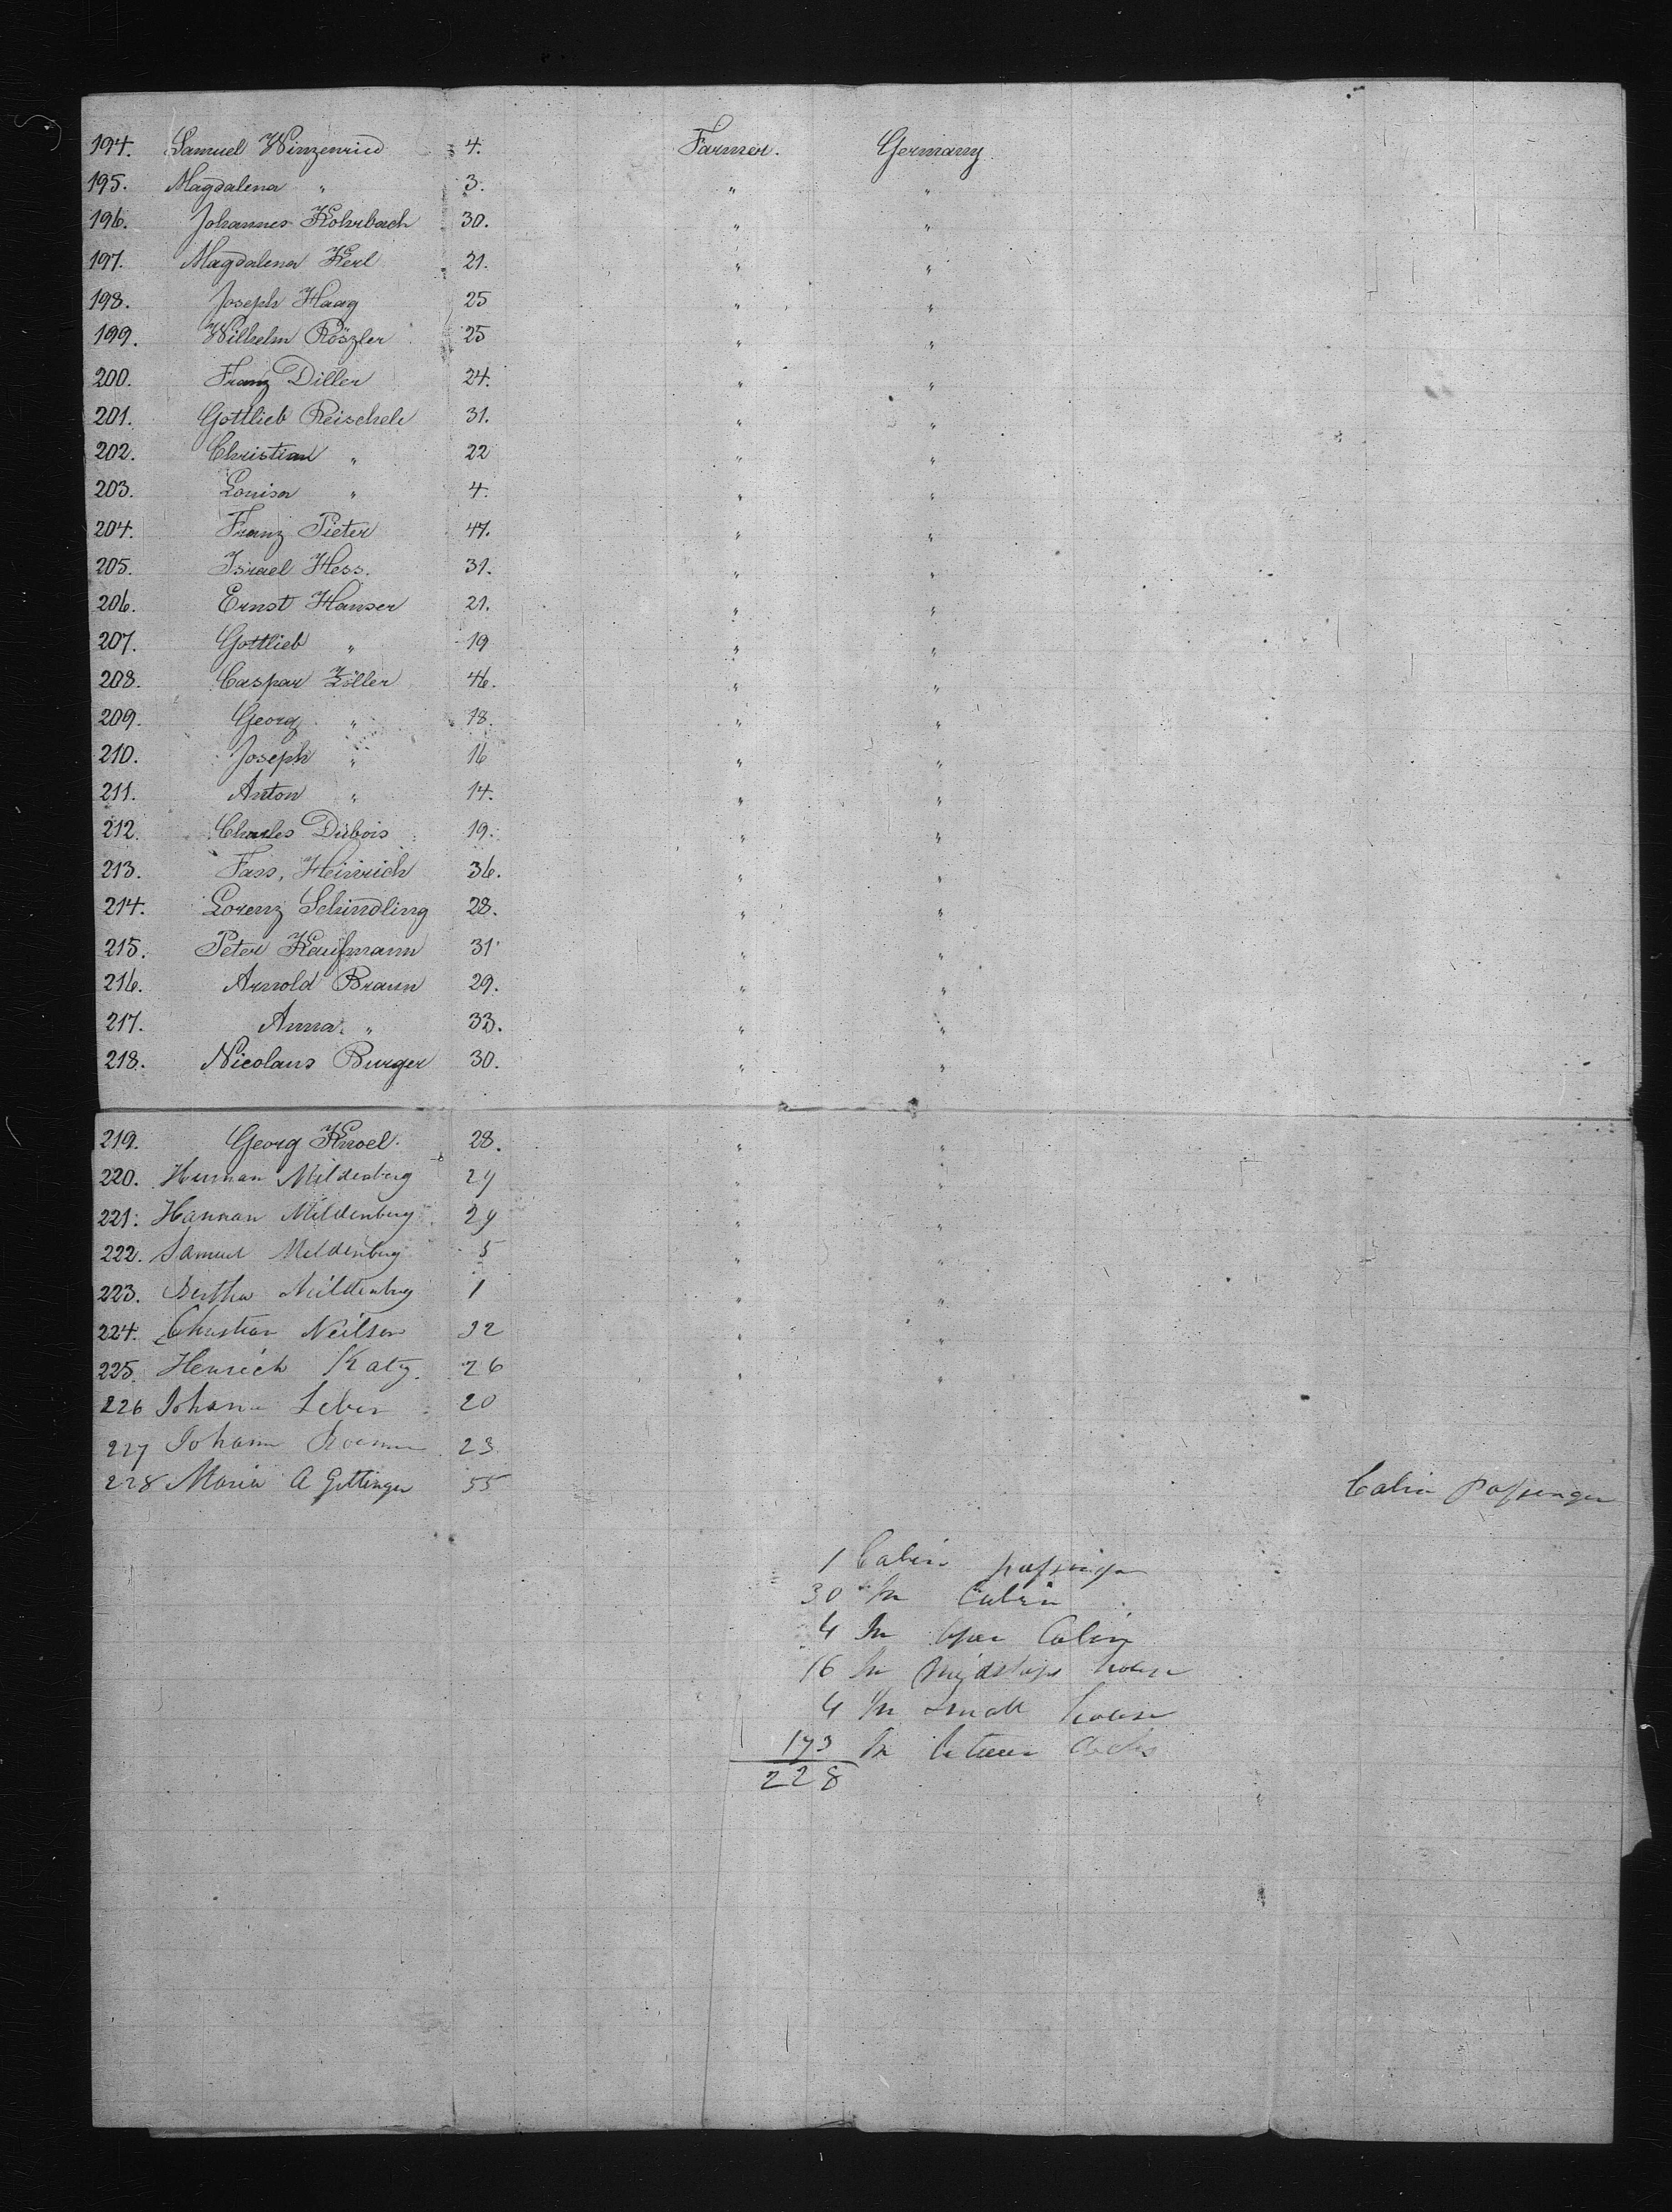 194. Samuel Winzenried 4. Farmer. Germany
195. Magdalena " 3. " "
196. Johannes Kohrbach 30. " "
197. Magdalena Kerl 21. " "
198. Joseph Haag 25 " "
199. Wilhelm Röszler 25 " "
200. Franz Diller 24. " "
201. Gottlieb Reischele 31. " "
202. Christian " 22 " "
203. Louisa " 4. " "
204. Franz Pieter 47. " "
205. Israel Hess. 31. " "
206. Ernst Hanser 21. " "
207. Gottlieb " 19 " "
208. Caspar Zöller 46. " "
209. Georg " 18. " "
210. Joseph " 16 " "
211. Anton " 14. " "
212. Charles Dubois 19. " "
213. Fass, Heinrich 36. " "
214. Lorenz Schindling 28. " "
215. Peter Kaufmann 31 " "
216. Arnold Braun 29. " "
217. Anna " 33. " "
218. Nicolaus Burger 30. " "
219. Georg Knoel. 28. " "
220. Herman Mildenberg 29 " "
221. Hannan Mildenberg 29 " "
222. Samuel Mildenberg 5 " "
223. Bertha Mildenberg 1 " "
224. Christian Neilsen 32 " "
225. Henrich Katz. 26 " "
226 Johann Leber 20
227 Johann 23
228 Maria A Gottinger 55 Cabin Passenger
1 Cabin passenger
30 In Cabin
4 In Cabin
16 In Midships house
4 In small house
173 In between decks
228